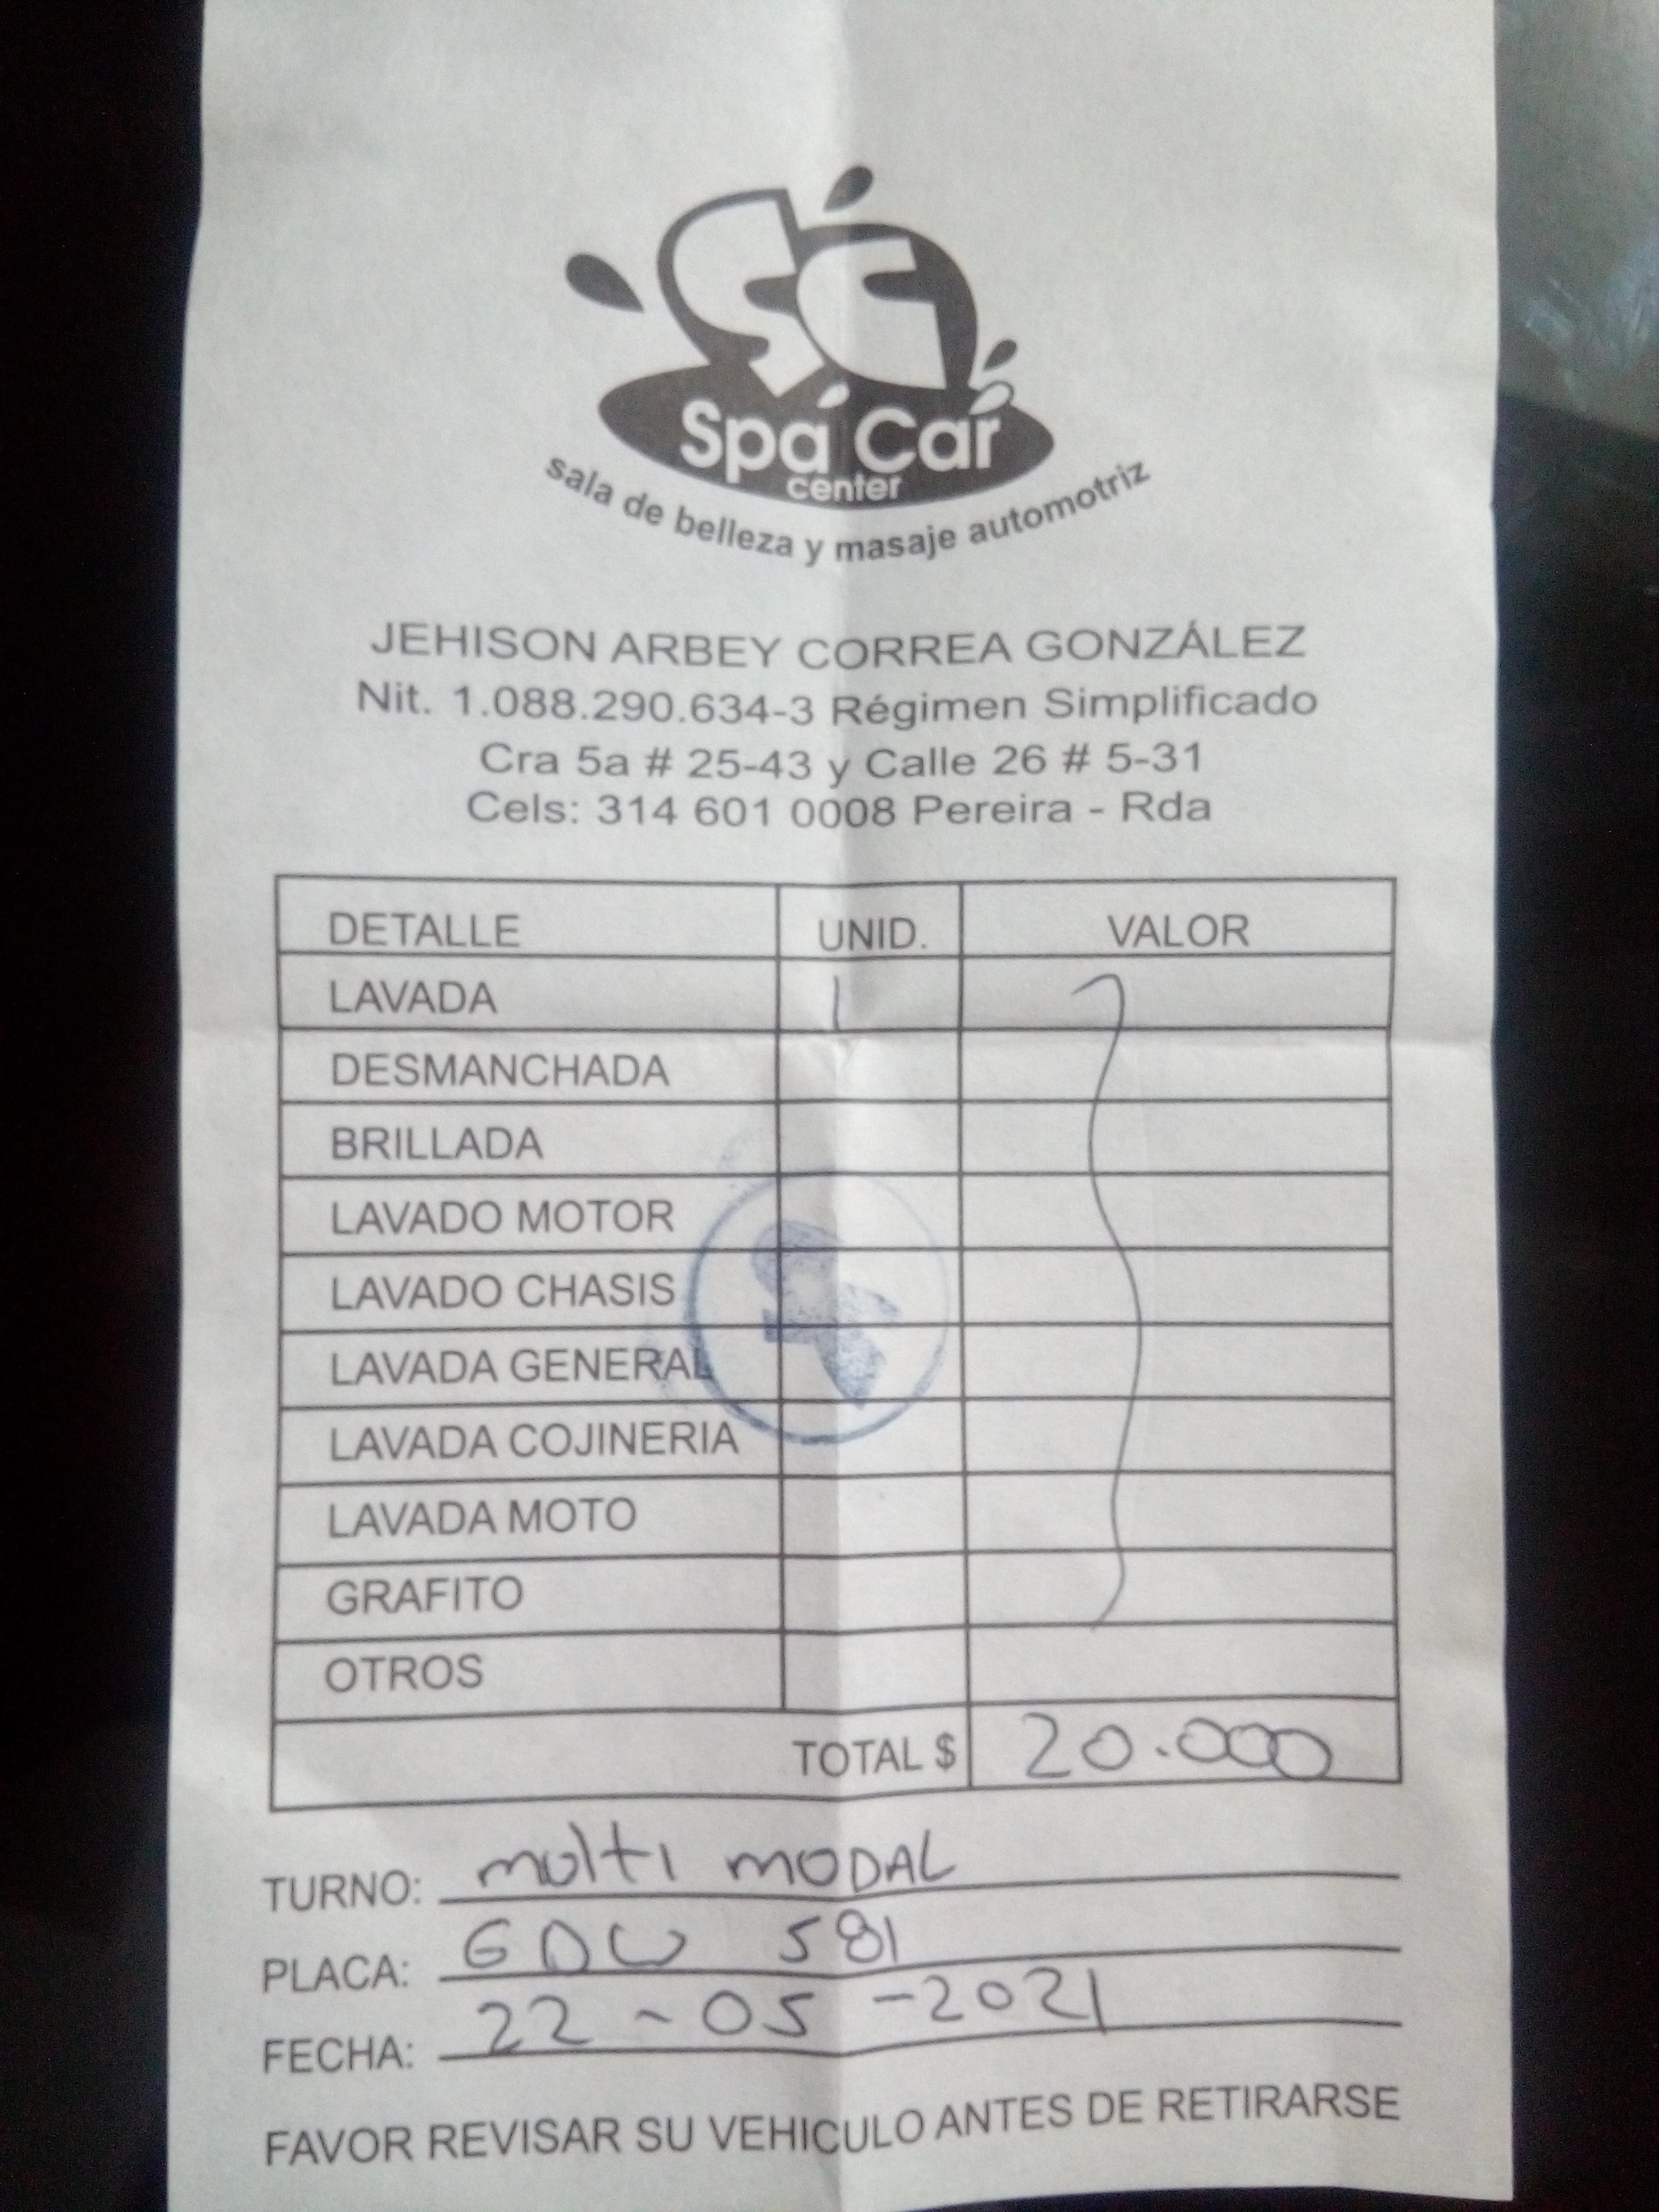 SC
Spa Car
center
sala de belleza y masaje automotriz
JEHISON ARBEY CORREA GONZÁLEZ
Nit. 1.088.290.634-3 Régimen Simplificado
Cra 5a # 25-43 y Calle 26 # 5-31
Cels: 314 601 0008 Pereira - Rda
DETALLE UNID. VALOR
LAVADA 1
DESMANCHADA
BRILLADA
LAVADO MOTOR
LAVADO CHASIS
LAVADA GENERAL
LAVADA COJINERIA
LAVADA MOTO
GRAFITO
OTROS
TOTAL $ 20.000
TURNO: multi MODAL
PLACA: GDW 581
FECHA: 22-05-2021
FAVOR REVISAR SU VEHICULO ANTES DE RETIRARSE